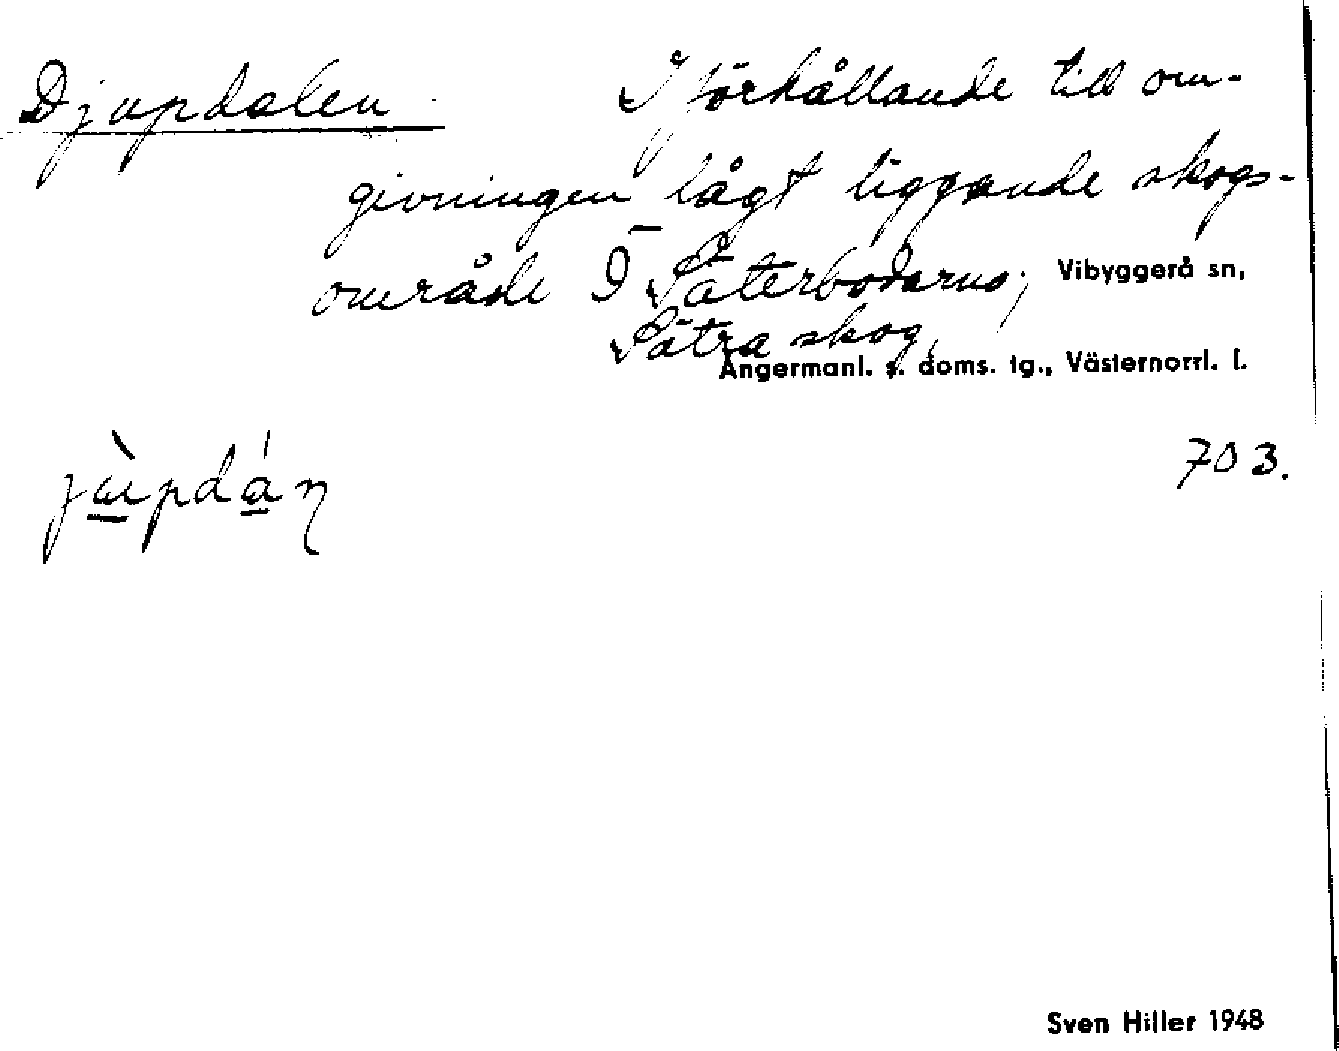 Djupdalen. I förhållande till om-
givningen lågt liggande skogs-
område Ö Säterbodarna; Vibyggerå sn,
Sätra skog,
Ångermanl. s. doms. tg., Västernorrl. l.
703.
Sven Hiller 1948